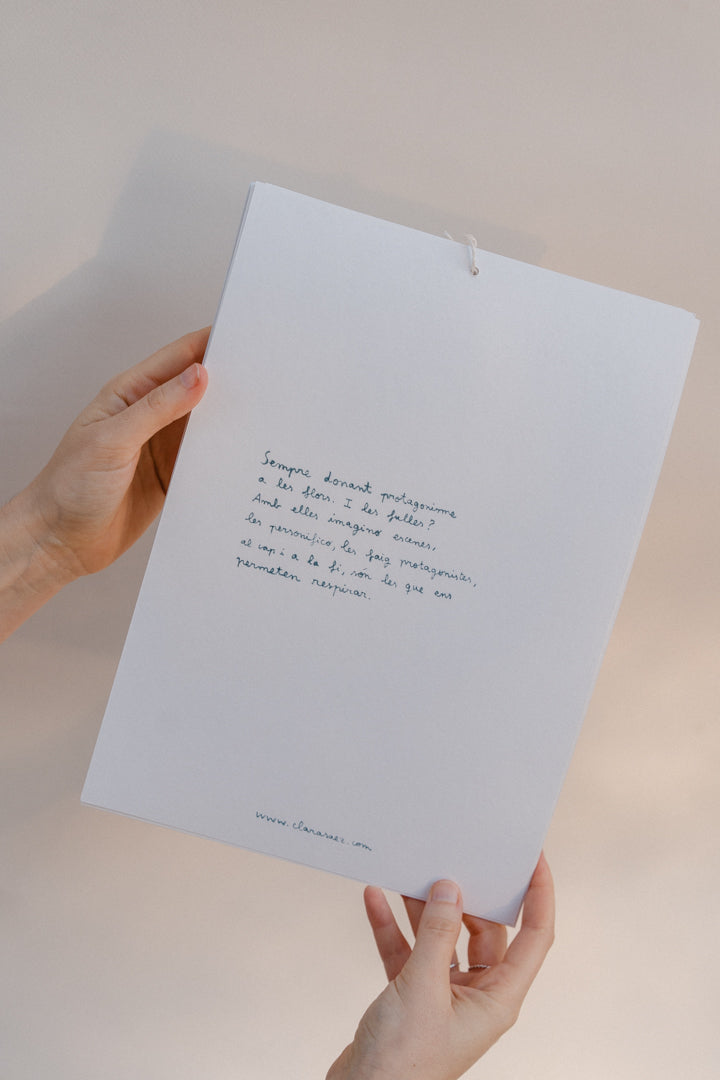 Sempre donant protagonisme
a les flors. I les fulles?
Amb elles imagino escenes,
les personifico, les faig protagonistes,
al cap i a la fi, són les que ens
permeten respirar.
www.clarasaez.com